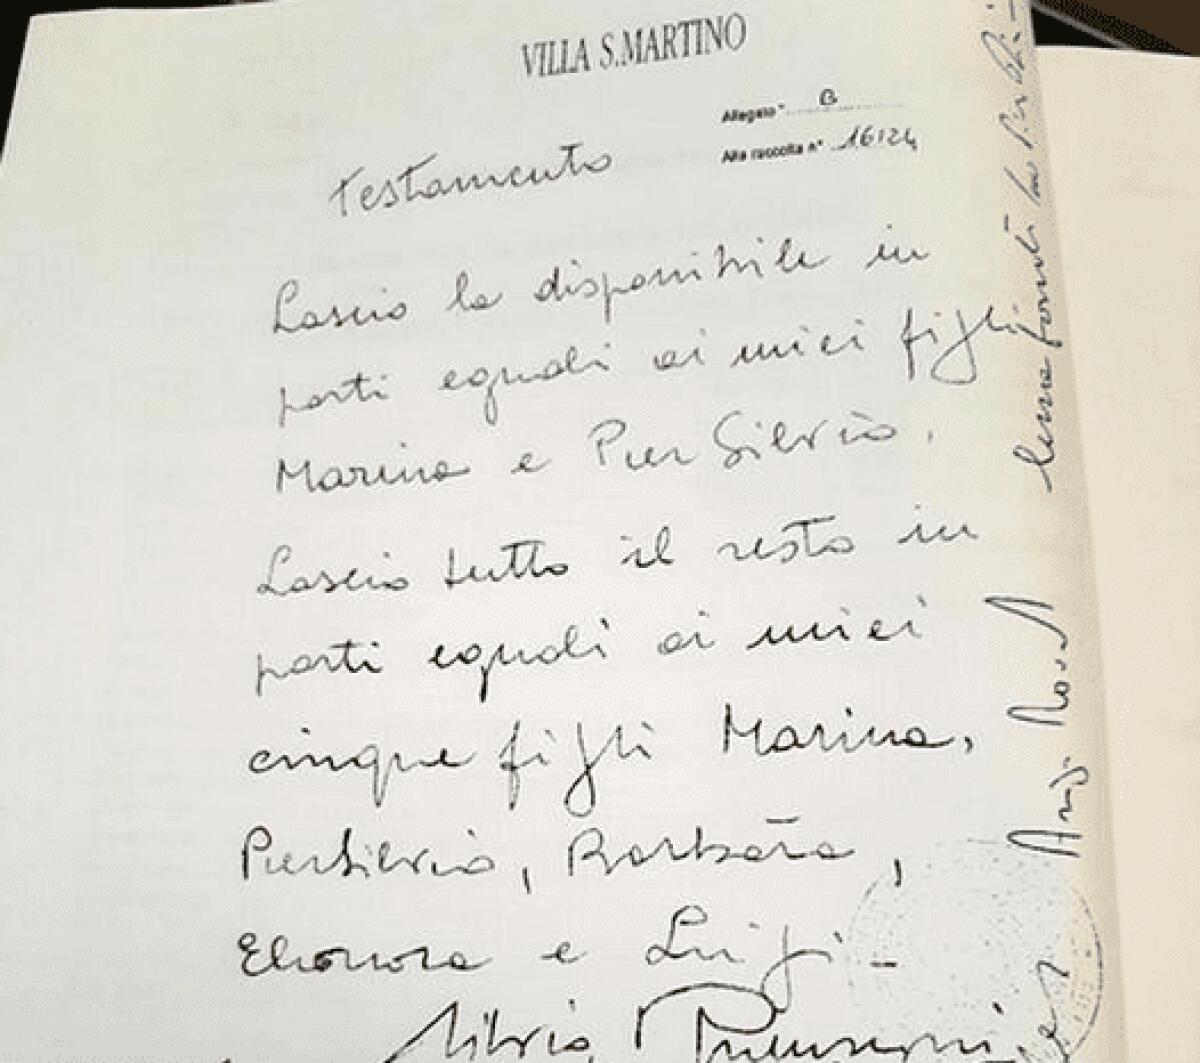 VILLA S.MARTINO
Allegato " B
Alla raccolta n° 16124
Testamento
Lascio la disponibile in
parti eguali ai miei figli
Marina e Pier Silvio.
Lascio tutto il resto in
parti eguali ai miei
cinque figli Marina,
PierSilvio, Barbara,
Eleonora e Luigi –
Silvio Berlusconi